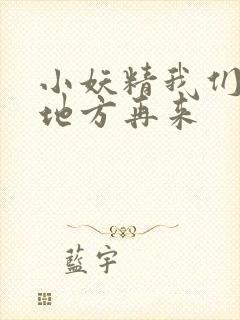 小妖精我们
地方再来
藍宇